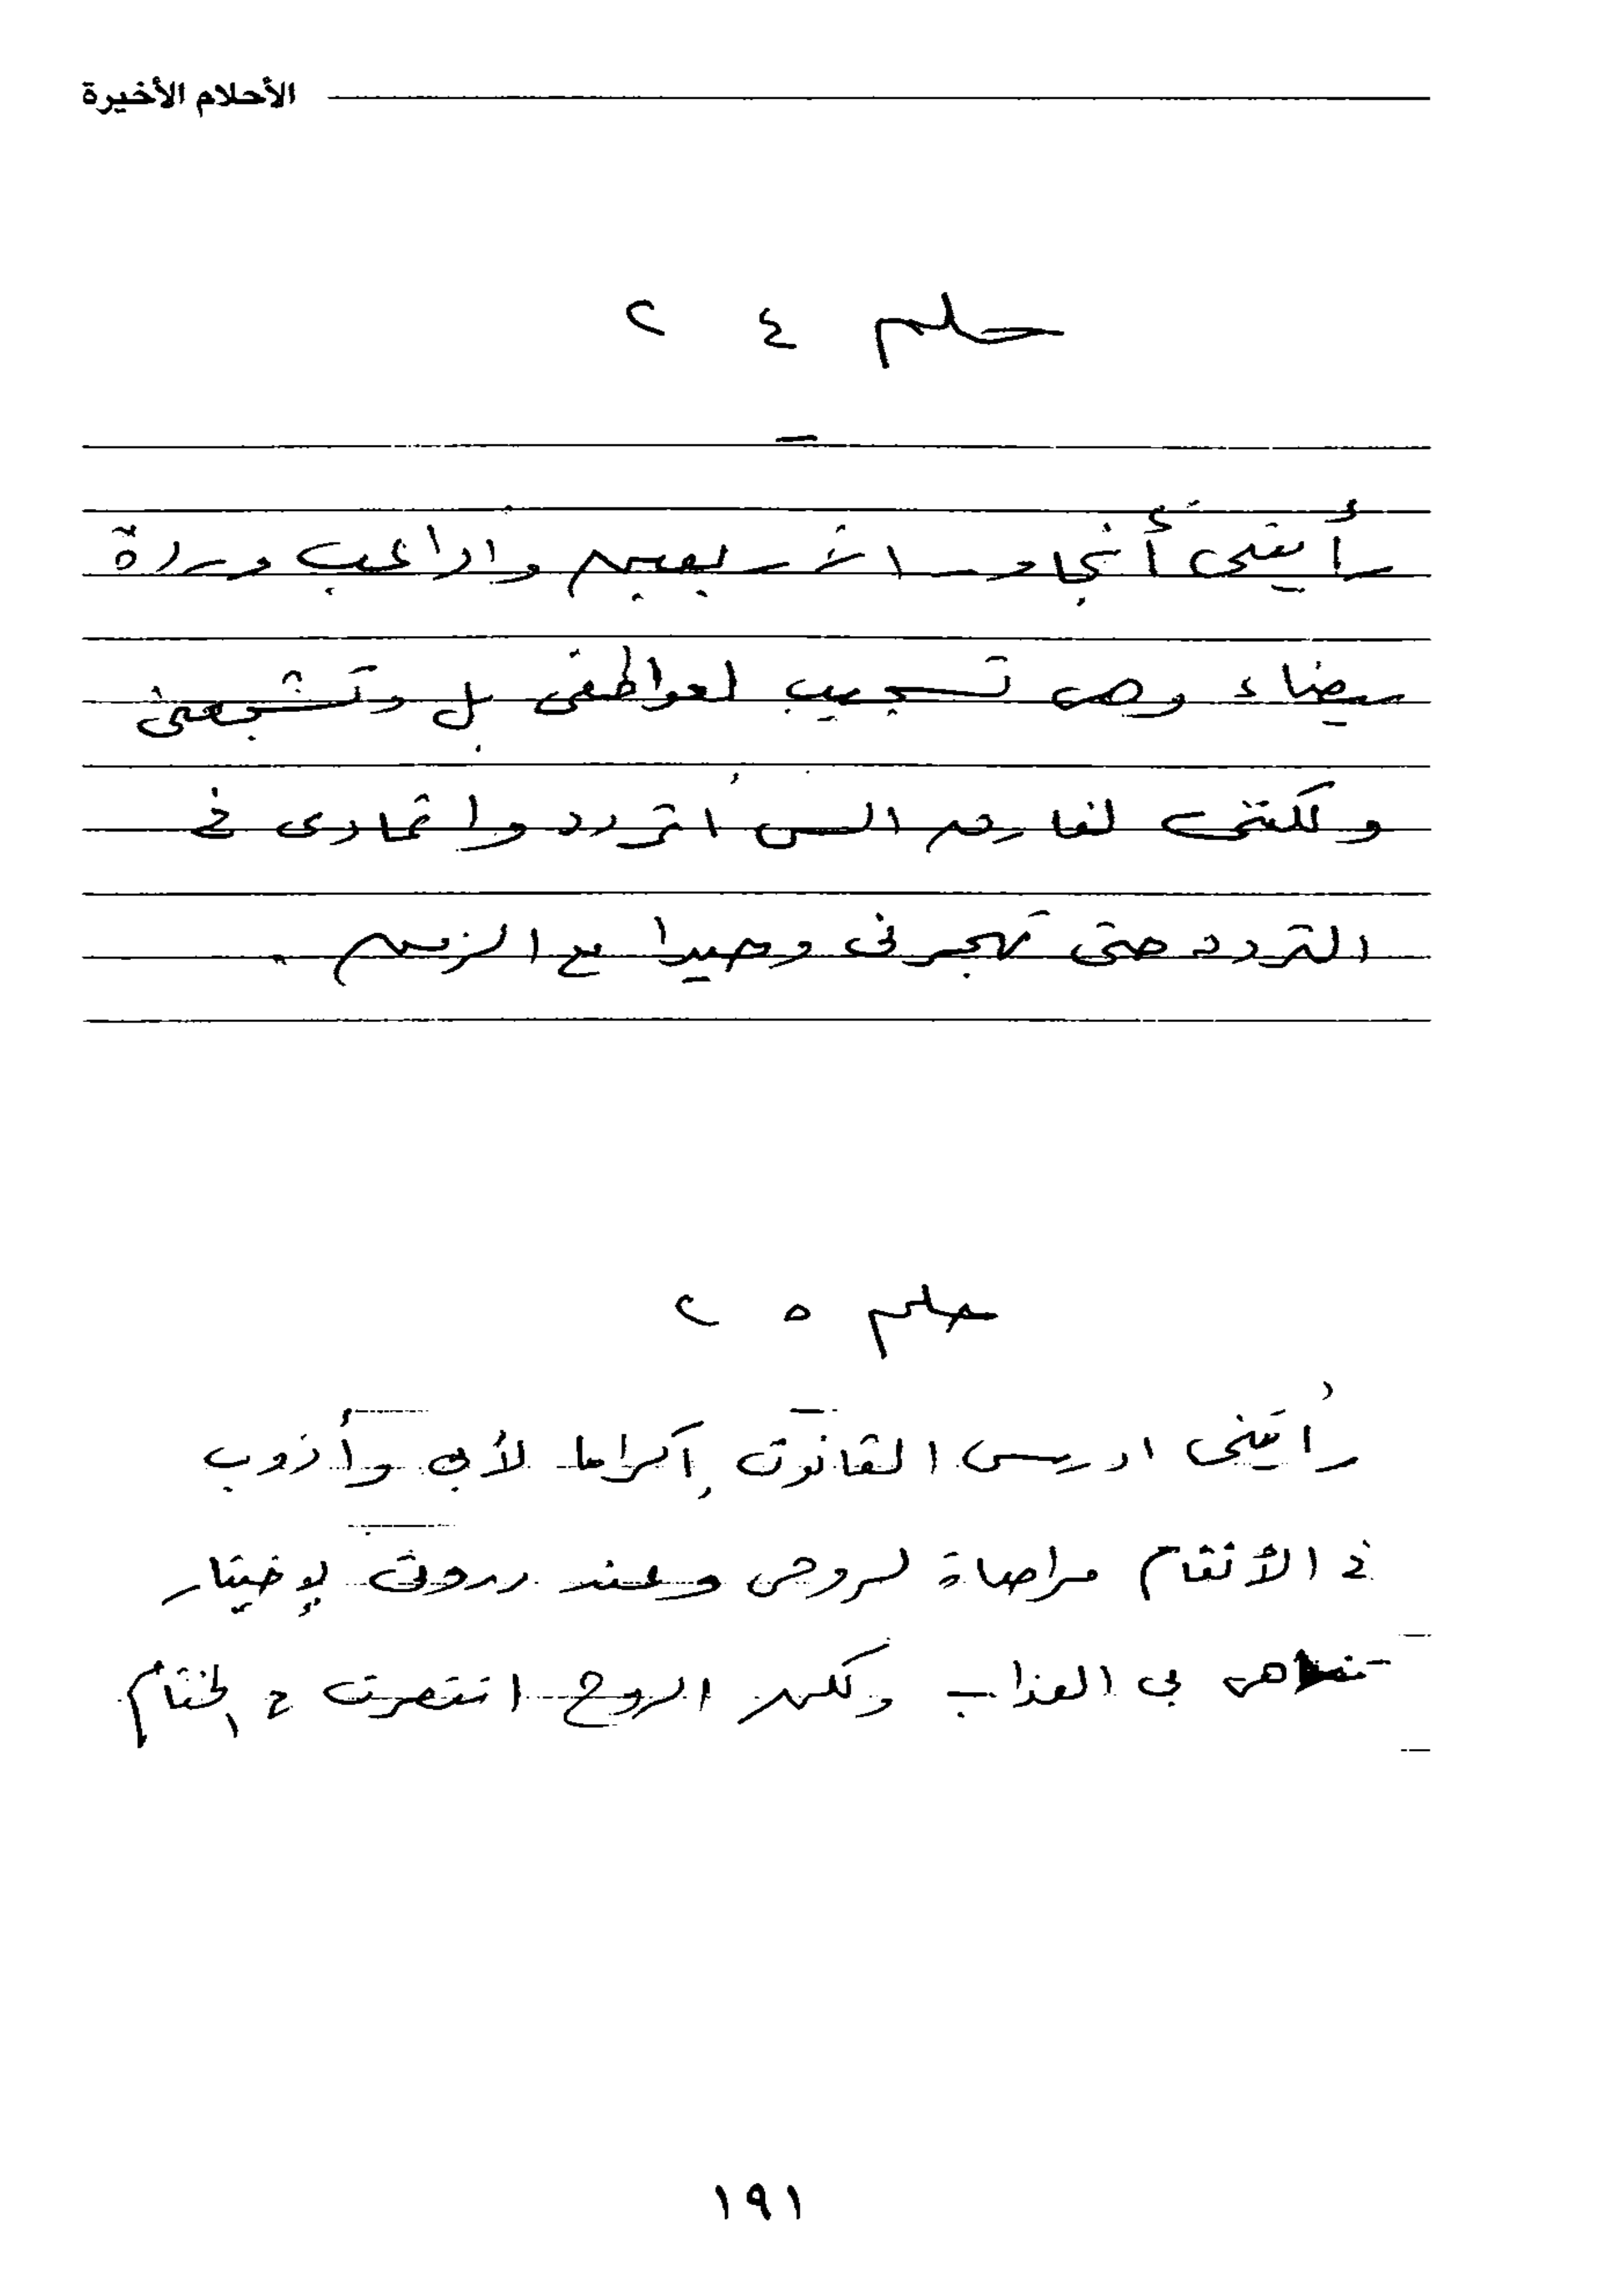 الأحلام الأخيرة
حلم ٢٤
رأيتنى أتجاوز الأربعين واداعب وردة
بيضاء وهى تستجيب لعواطفى بل وتشجعنى
ولكننى لفارق السن اتردد واتمادى فى
التردد حتى تهجرنى وحيدا مع الزمن .
حلم ٢٥
رأيتنى ادرس القانون إكراما لأبى وأذوب
فى الأنغام مراضاة لروحى وعند
بى العذاب ولكن الروح انتصرت فى الختام
١٩١